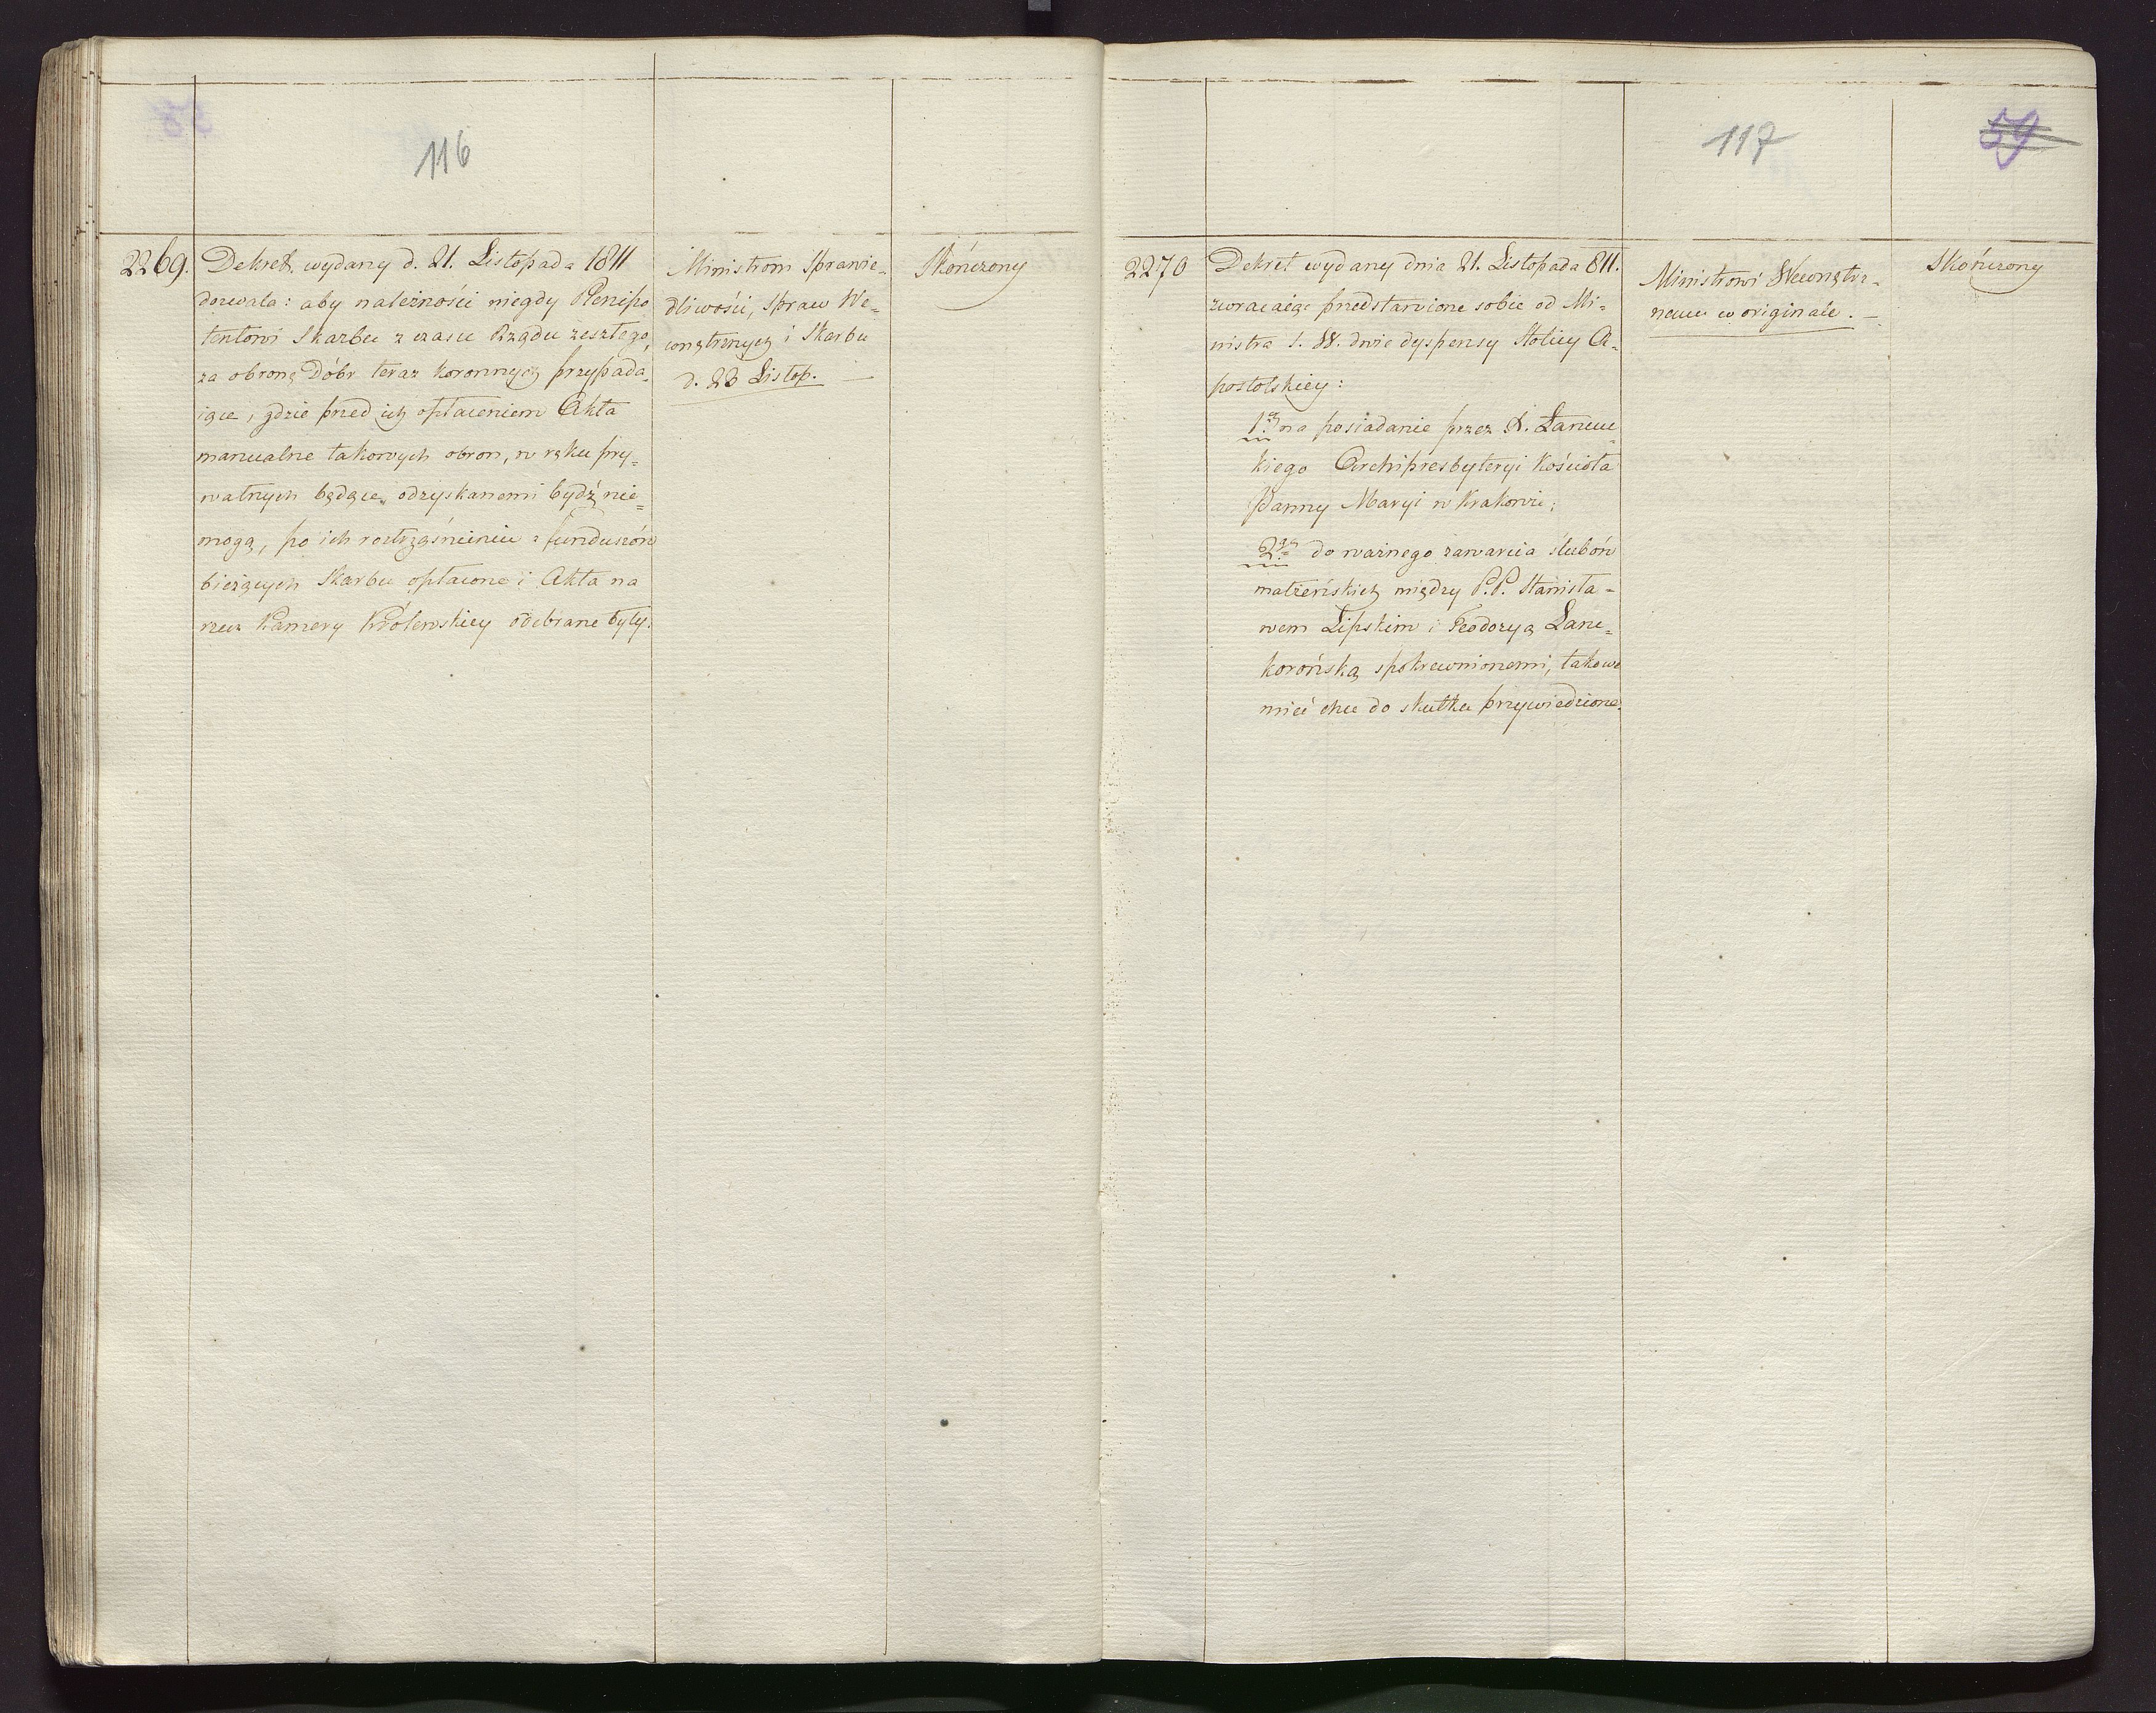 116
2269.
Dekret wydany d. 21. Listopada 1811
dozwala: aby należności niegdy Plenipo
tentowi Skarbu z czasu Rządu zeszłego,
za obronę Dóbr teraz koronnych przypada,
iące, gdzie przed ich opłaceniem Akta
manualne takowych obron, w ręku pry-
watnych będące, odzyskanemi bydź nie-
mogą, po ich roztrząśnieniu z funduszów
bieżących Skarbu opłacone i Akta na
rzecz Kamery Królewskiey odebrane były.
Ministrom Sprawie-
dliwości, Spraw We-
wnętrznych i Skarbu
d. 23 Listop. —
Skończony
117
59
2270
Dekret wydany dnia 21. Listopada 811.
zwracaiąc przedstawione sobie od Mi-
nistra S. W. dwie dyspensy Stolicy A-
postolskiey:
1ą na posiadanie przez X. Łańcuc-
kiego Archipresbyteryi Kościoła
Panny Maryi w Krakowie;
2gą do ważnego zawarcia ślubów
małżeńskich między P.P. Stanisła-
wem Lipskim i Teodozyą Lanc-
korońską spokrewnionemi, takowe
mieć chce do skutku przywiedzione.
Ministrowi Wewnętrz-
nemu w originale. —
Skończony